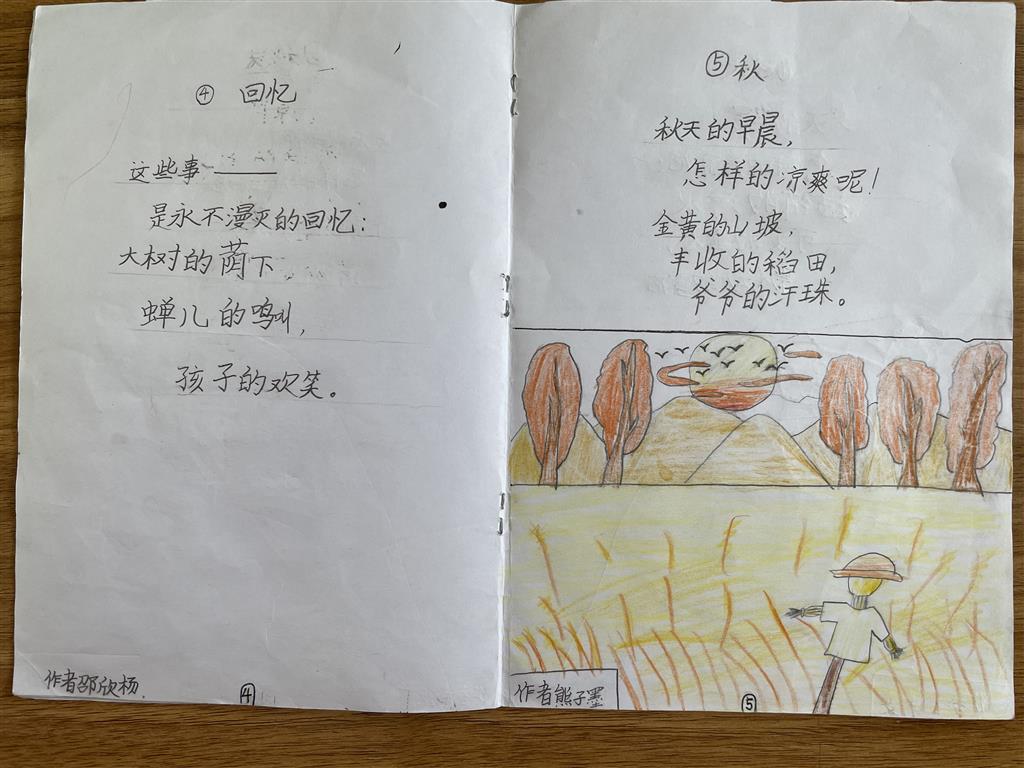 ④ 回忆
这些事——
是永不漫灭的回忆：
大树的荫下，
蝉儿的鸣叫，
孩子的欢笑。
作者邵欣杨
④
⑤ 秋
秋天的早晨，
怎样的凉爽呢！
金黄的山坡，
丰收的稻田，
爷爷的汗珠。
作者熊子墨
⑤